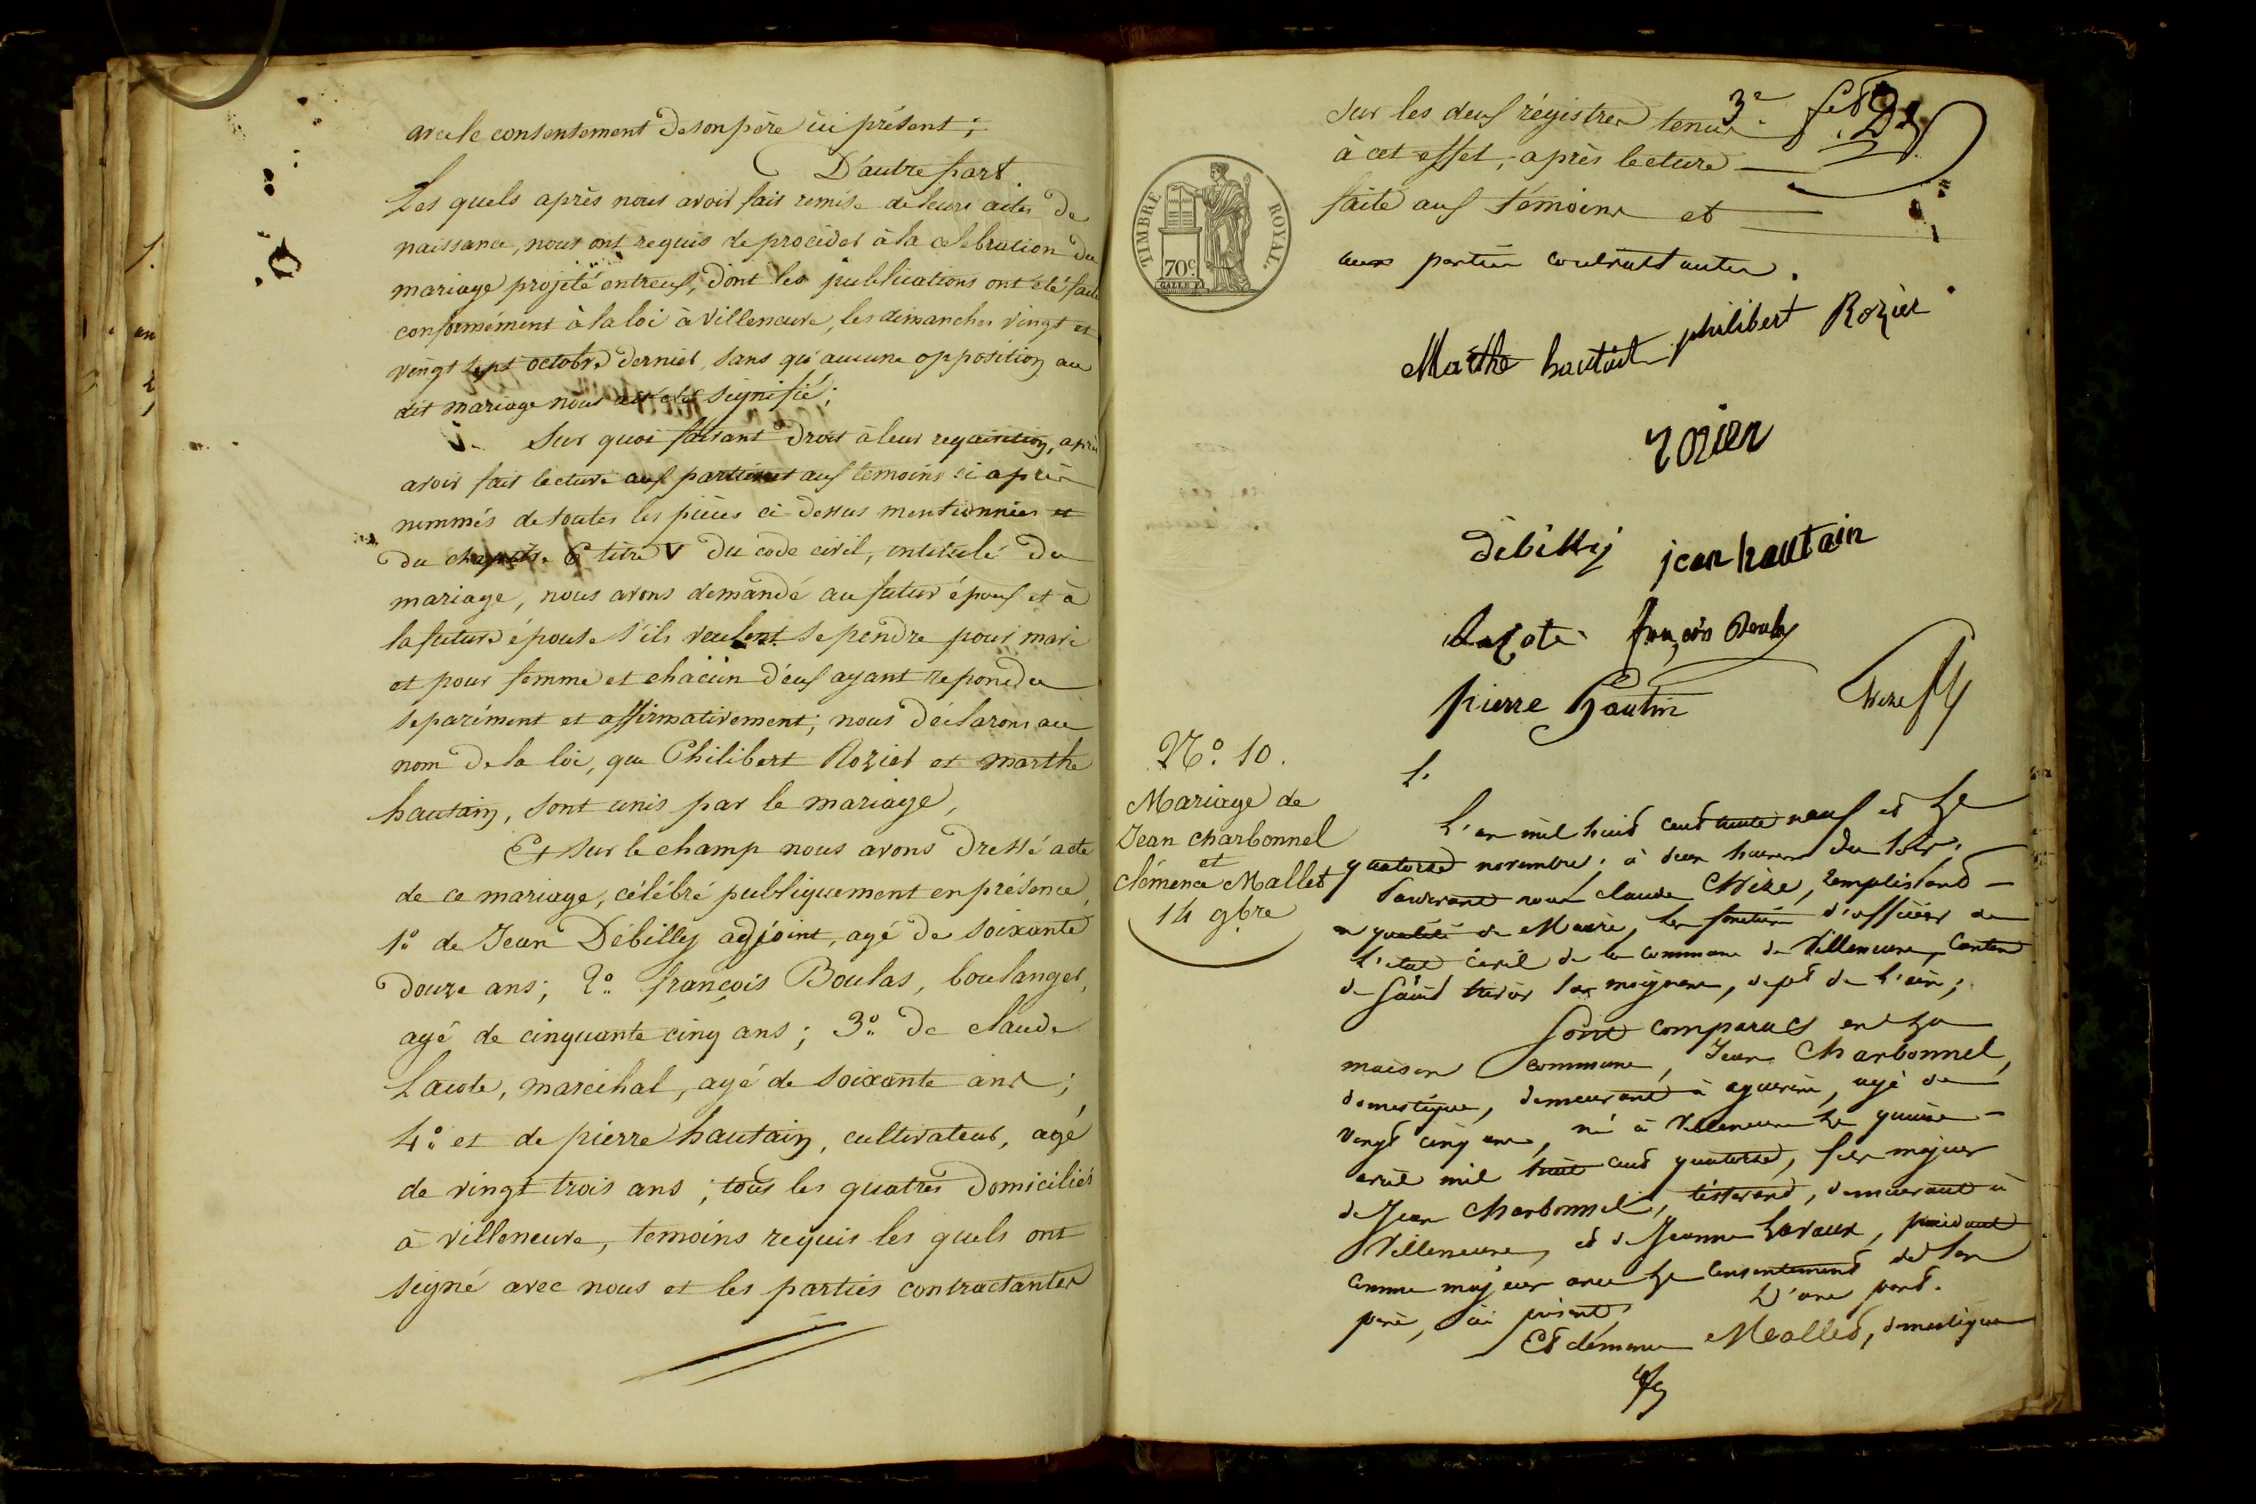 avec le consentement de son père ici présent;
D'autre part
Les quels après nous avoir fait remise de leurs actes de
naissance, nous ont requis de procéder à la célébration du
mariage projeté entreux, dont les publications ont été faites
conformément à la loi à Villeneuve, les dimanches vingt et
vingt sept octobre dernier, sans qu'aucune opposition au
dit mariage nous ait été signifié;
Sur quoi faisant droit à leur requisition, après
avoir fait lecture aux parties et aux temoins ci après
nommés de toutes les pièces ci dessus mentionnées et
du chapitre 6 titre V du code civil, intitulé du
mariage, nous avons demandé au futur époux et à
la future épouse s'ils veulent se prendre pour mari
et pour femme et chacun d'eux ayant repondu
separément et affirmativement; nous déclarons au
nom de la loi, que Philibert Rozier et marthe
hautain, sont unis par le mariage,
Et sur le champ nous avons dressé acte
de ce mariage, célébré publiquement en présence,
1º de Jean Debilly adjoint, agé de soixante
douze ans; 2º françois Boulas, boulanger,
agé de cinquante cinq ans; 3º de claude
Lacote, marcéhal, agé de soixante ans;
4º et de pierre hautain, cultivateur, agé
de vingt trois ans; tous les quatres domiciliés
à villeneuve, temoins requis les quels ont
signé avec nous et les parties contractantes
3e
sur les deux régistres tenus
à cet effet, après lecture
faite aux témoins et
aux parties contractantes.
TIMBRE ROYAL.
70c
Marthe hautain philibert Rozier
rozier
débilly jean hautain
Lacote françois Boulas
pierre hautin
Nº. 10.
Mariage de
Jean charbonnel
et
clémence Mallet
14 9bre
L'an mil huit cent trente neuf et le
quatorze novembre, à deux heures du soir,
Pardevant nous claude , remplissant
en qualité de Maire, les fonctions d'officier de
l'état civil de la commune de Villeneuve, Canton
de Saint trivier sur moignans, dept de l'ain;
Sont comparus en la
maison commune, Jean Charbonnel,
domestique, demeurant à , agé de
vingt cinq ans, né à Villeneuve le quinze
avril mil huit cent quatorze, fils majeur
de Jean Charbonnel, tisserand, demeurant à
Villeneuve, et de Jeanne , procédant
comme majeur avec le consentement de son
père, ici présent, D'une part.
Et clémence Mallet, domestique